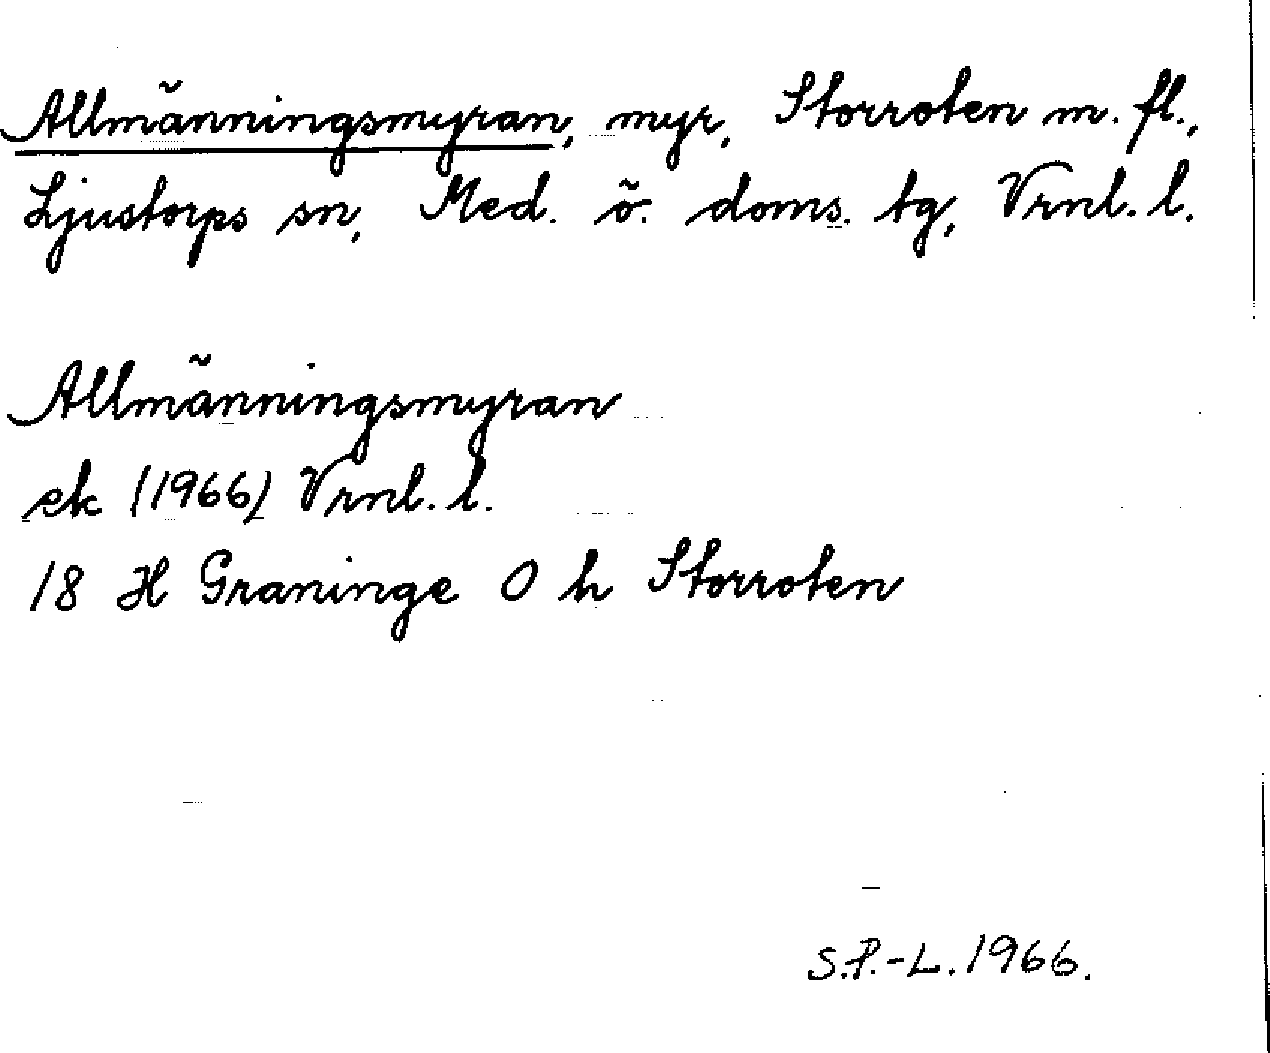 Allmänningsmyran, myr, Storroten m. fl.,
Ljustorps sn, Med. ö. doms. tg, Vrnl. l.
Allmänningsmyran
ek (1966) Vrnl. l.
18 H Graninge O h Storroten
S.P.-L. 1966.